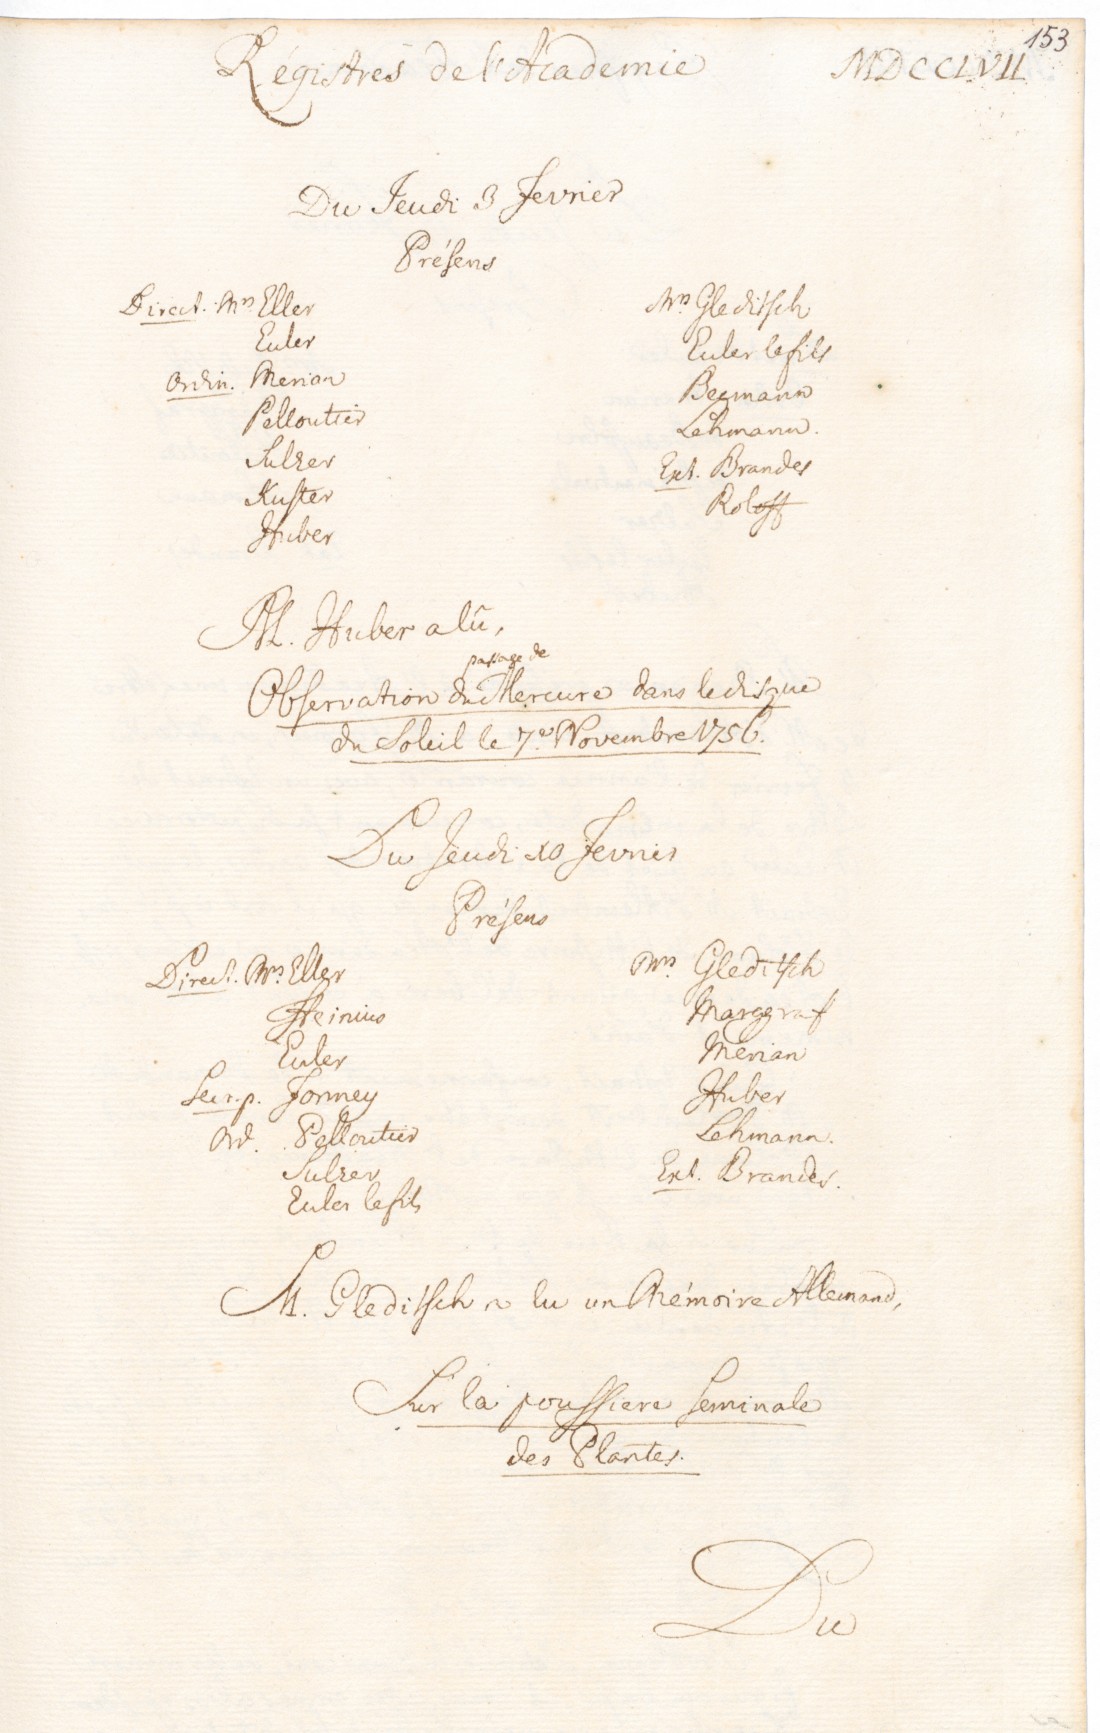 153
Régistres de l'Academie MDCCLVII
Du Jeudi 3 fevrier
Présens
Direct. Mrs Eller
Euler
Ordin. Merian
Pelloutier
Sulzer
Kuster
Huber
Mrs Gleditsch
Euler le fils
Becmann
Lehmann.
Ext. Brandes
Roloff
M. Huber a lû,
passage de
Observation du Mercure dans le disque
du Soleil le 7e Novembre 1756.
Du Jeudi 10 Fevrier
Présens
Direct. Mrs Eller
Heinius
Euler
Secr. p. Formey
Ord. Pelloutier
Sulzer
Euler le fils
Mrs Gleditsch
Marggraf
Merian
Huber
Lehmann.
Ext. Brandes.
M. Gleditsch a lu un Mémoire Allemand,
Sur la poussiere seminale
des Plantes.
Du